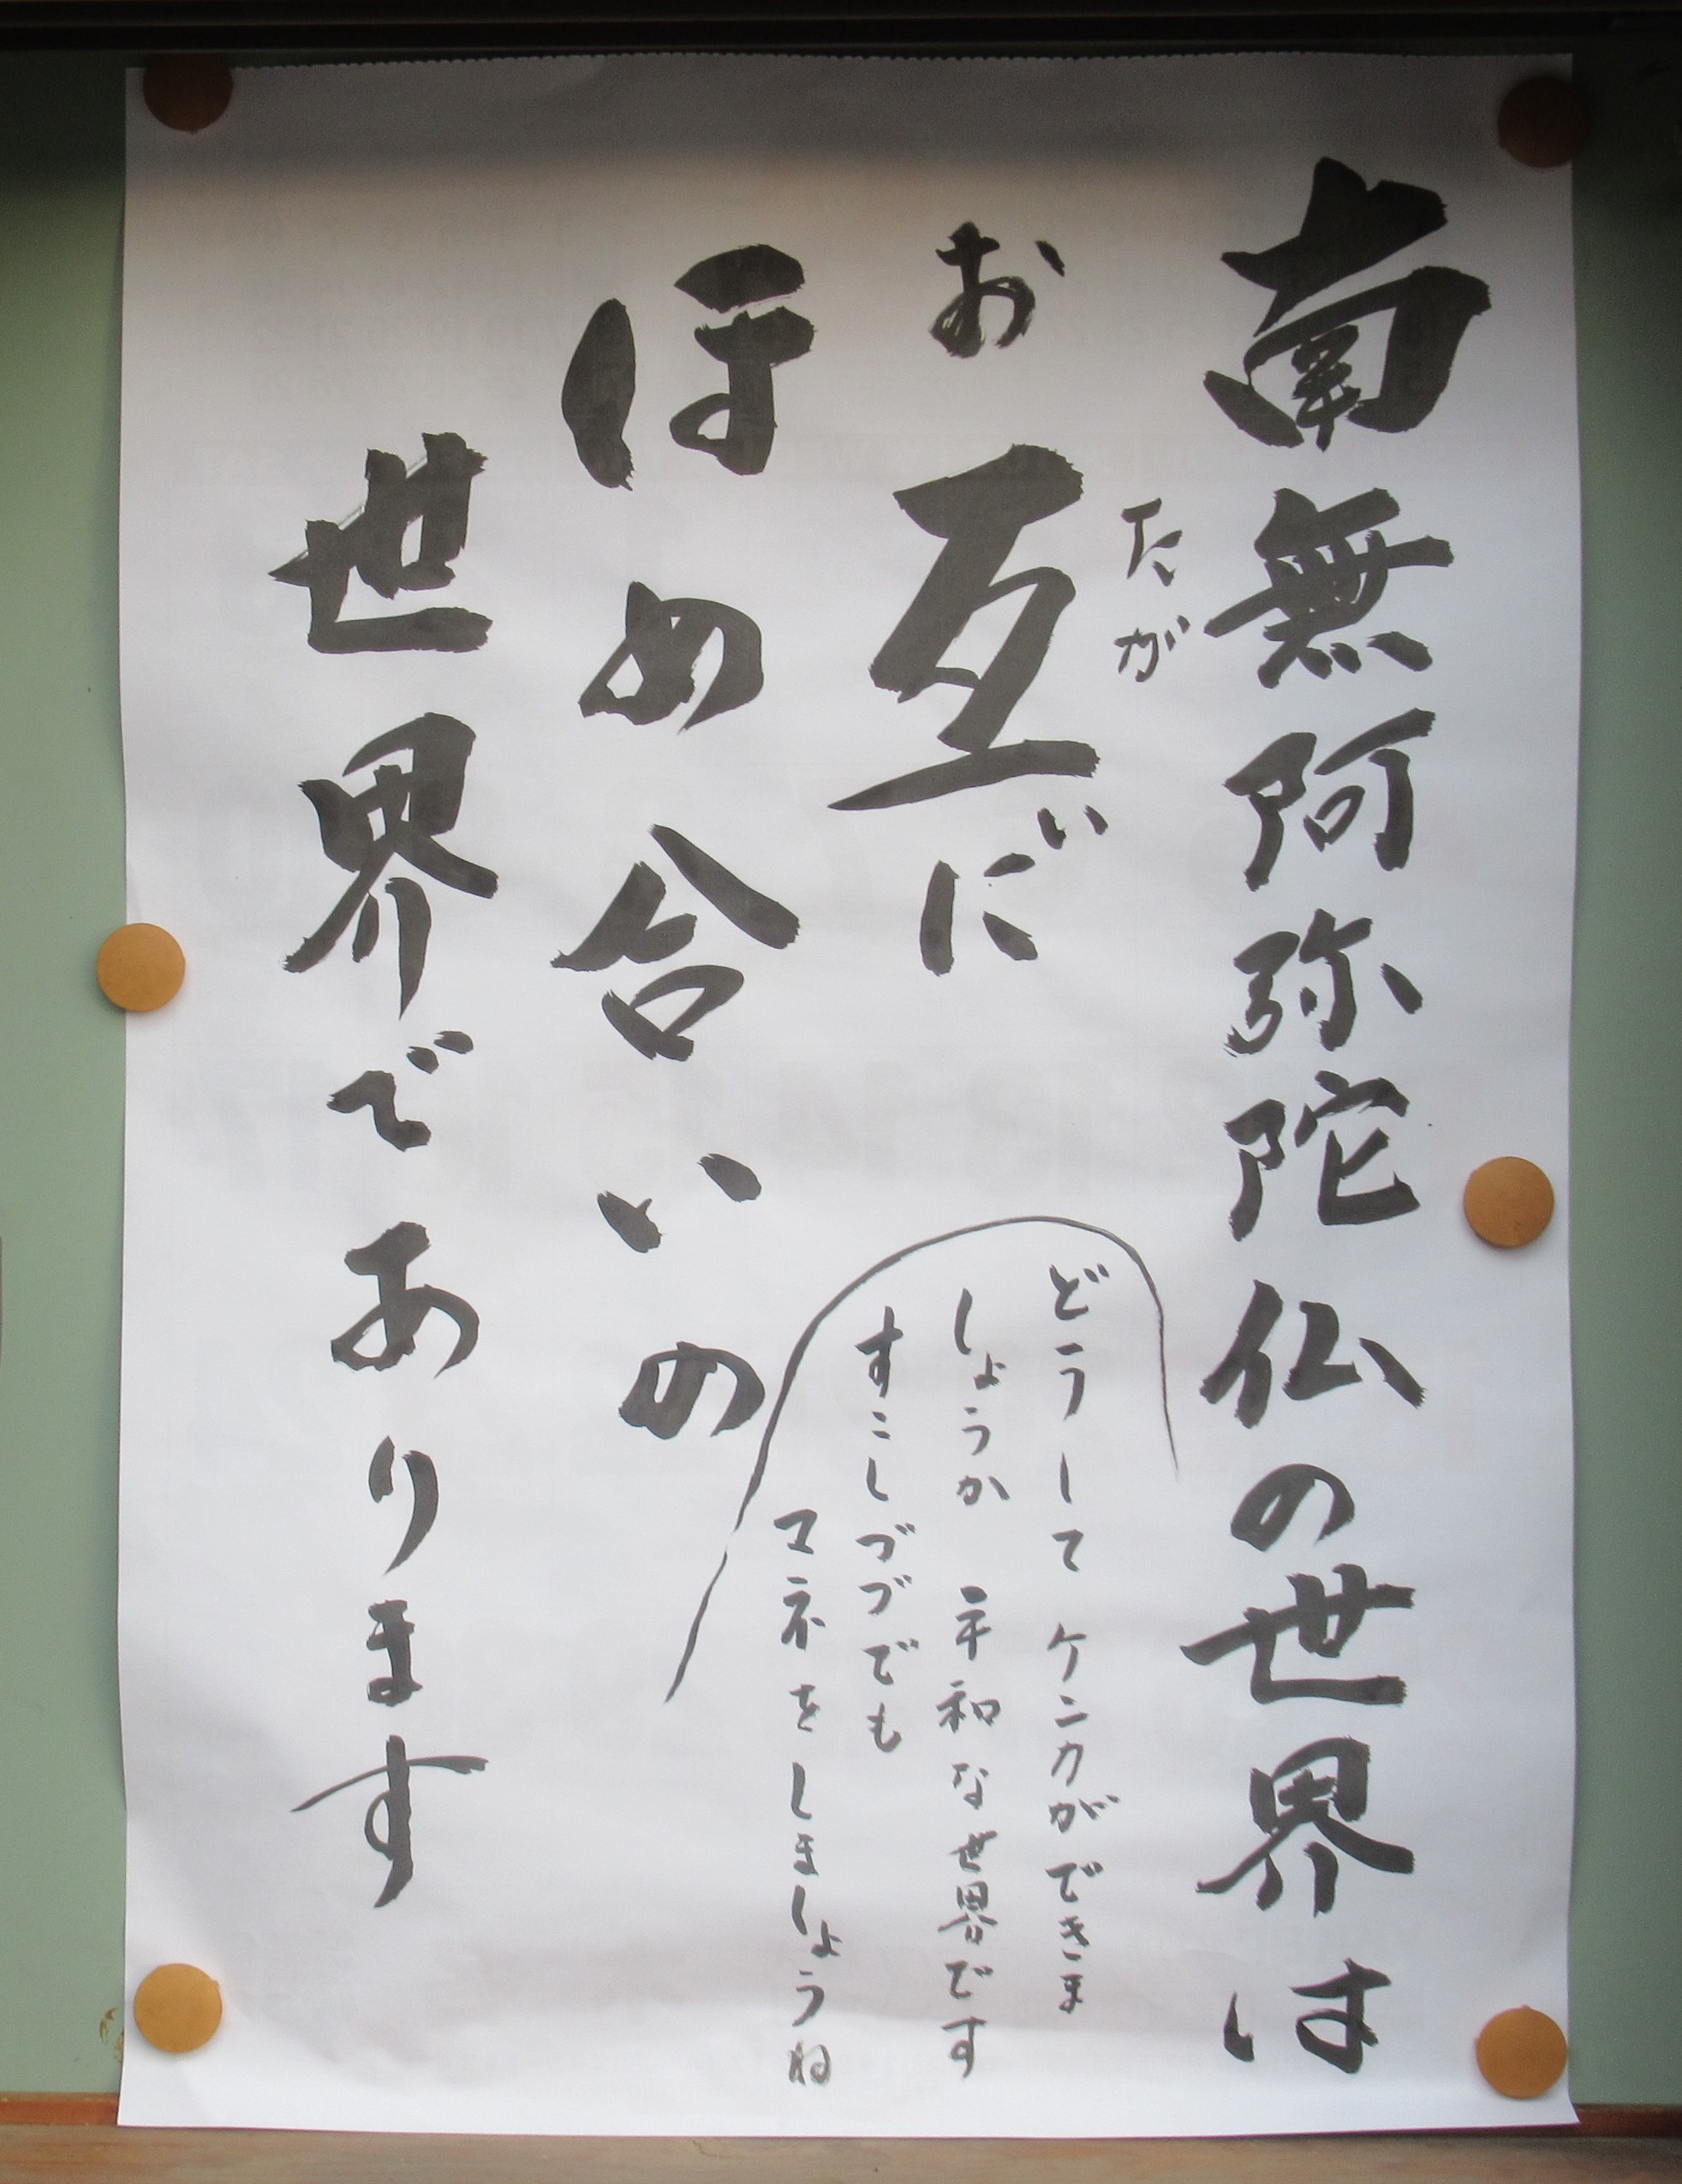 南無阿弥陀仏の世界は
お互いに
たが
ほめ合いの
世界であります
どうして ケンカができま
しょうか 平和な世界です
すこしづづでも
マネをしましょうね